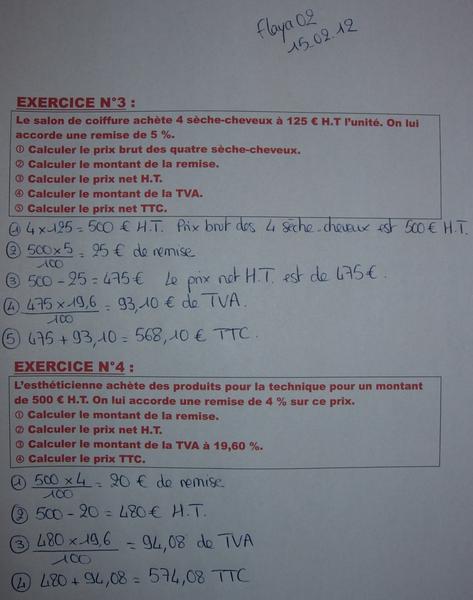 Flaya02
15.02.12
EXERCICE N°3 :
Le salon de coiffure achète 4 sèche-cheveux à 125 € H.T l'unité. On lui
accorde une remise de 5 %.
① Calculer le prix brut des quatre sèche-cheveux.
② Calculer le montant de la remise.
③ Calculer le prix net H.T.
④ Calculer le montant de la TVA.
⑤ Calculer le prix net TTC.
① 4 x 125 = 500 € H.T. Prix brut des 4 sèche-cheveux est 500 € H.T.
② 500 x 5 / 100 = 25 € de remise
③ 500 - 25 = 475 € Le prix net H.T. est de 475 €.
④ 475 x 19,6 / 100 = 93,10 € de TVA.
⑤ 475 + 93,10 = 568,10 € TTC.
EXERCICE N°4 :
L'esthéticienne achète des produits pour la technique pour un montant
de 500 € H.T. On lui accorde une remise de 4 % sur ce prix.
① Calculer le montant de la remise.
② Calculer le prix net H.T.
③ Calculer le montant de la TVA à 19,60 %.
④ Calculer le prix TTC.
① 500 x 4 / 100 = 20 € de remise
② 500 - 20 = 480 € H.T.
③ 480 x 19,6 / 100 = 94,08 de TVA
④ 480 + 94,08 = 574,08 TTC